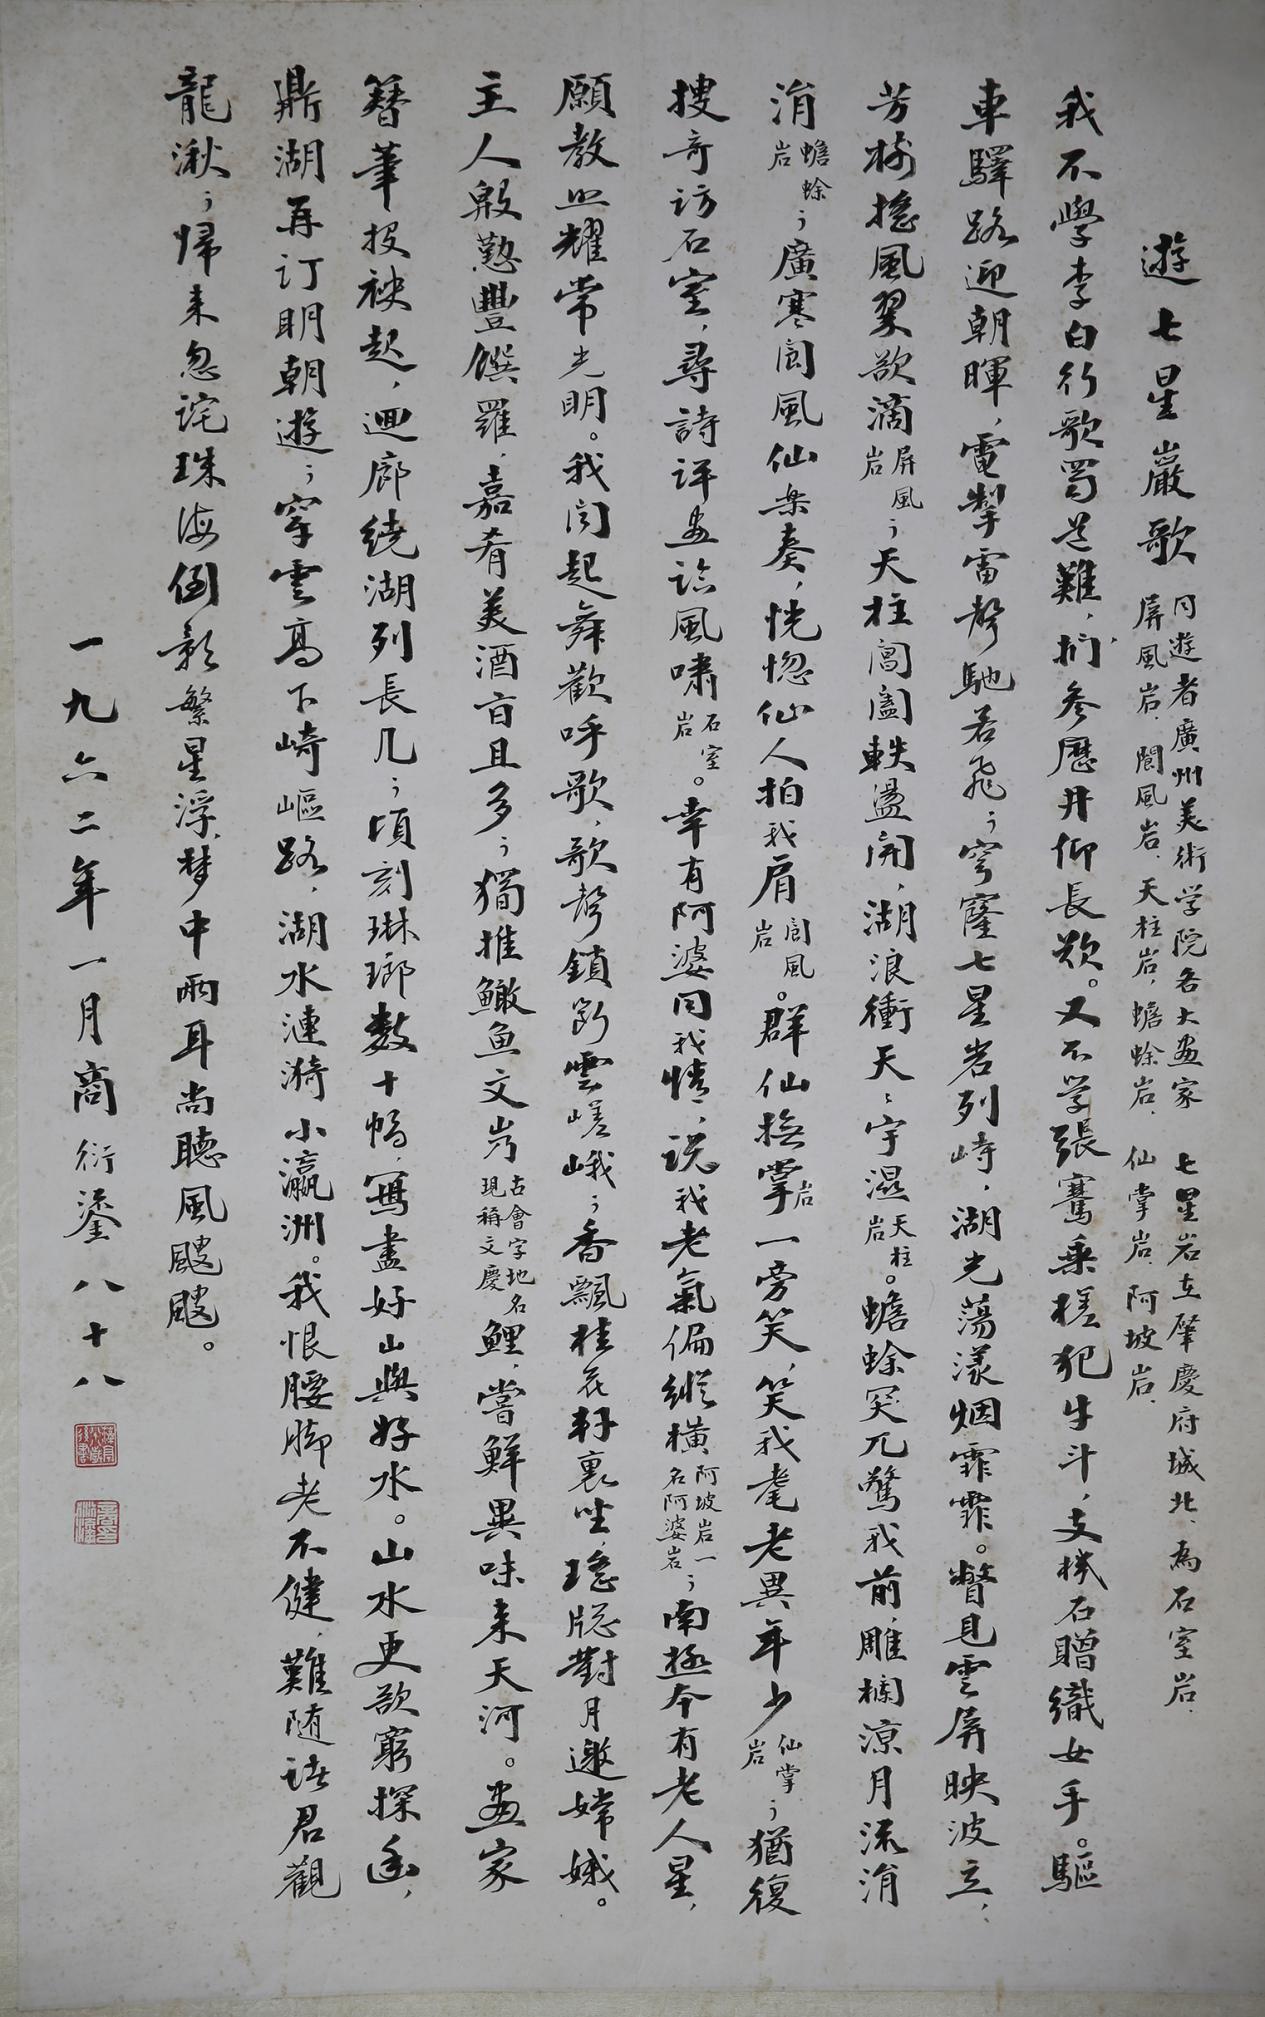 遊七星巖歌 同遊者廣州美術学院各大画家 七星岩在肇慶府城北、為石室岩、
屏風岩、閬風岩、天柱岩、蟾蜍岩、仙掌岩、阿坡岩、
我不學李白行歌蜀道難，捫參歷井仰長歎。又不学張騫乘槎犯牛斗，支機石贈織女手。驅
車驛路迎朝暉，電掣雷聲馳若飛；穹窿七星岩列峙，湖光蕩漾烟霏霏。瞥見雲屏映波立，
芳樹搖風翠欲滴屏風岩；天柱閶闔軼盪開，湖浪衝天天宇濕天柱岩。蟾蜍突兀驚我前，雕欄涼月流涓
涓蟾蜍岩；廣寒閬風仙樂奏，恍惚仙人拍我肩閬風岩。群仙撫掌岩一旁笑，笑我耄老異年少仙掌岩；猶復
搜奇訪石室，尋詩評画論風嘯石室岩。幸有阿婆同我情，説我老氣偏縱橫阿坡岩一名阿婆岩；南極今有老人星，
願教照耀常光明。我聞起舞歡呼歌，歌聲鎖斷雲嵯峨；香飄桂花軒裏坐，瑤牕對月邀嫦娥。
主人殷懃豐饌羅，嘉肴美酒旨且多；獨推鱖魚文岃古會字地名現稱文慶鯉，嘗鮮異味来天河。画家
簪筆投袂起，迴廊繞湖列長几；頃刻琳瑯數十幅，寫盡好山與好水。山水更欲窮探幽，
鼎湖再订明朝遊；穿雲高下崎嶇路，湖水漣漪小瀛洲。我恨腰脚老不健，難随諸君觀
龍湫；歸来忽詫珠海倒影繁星浮，梦中兩耳尚聽風颼颼。
一九六二年一月商衍鎏八十八